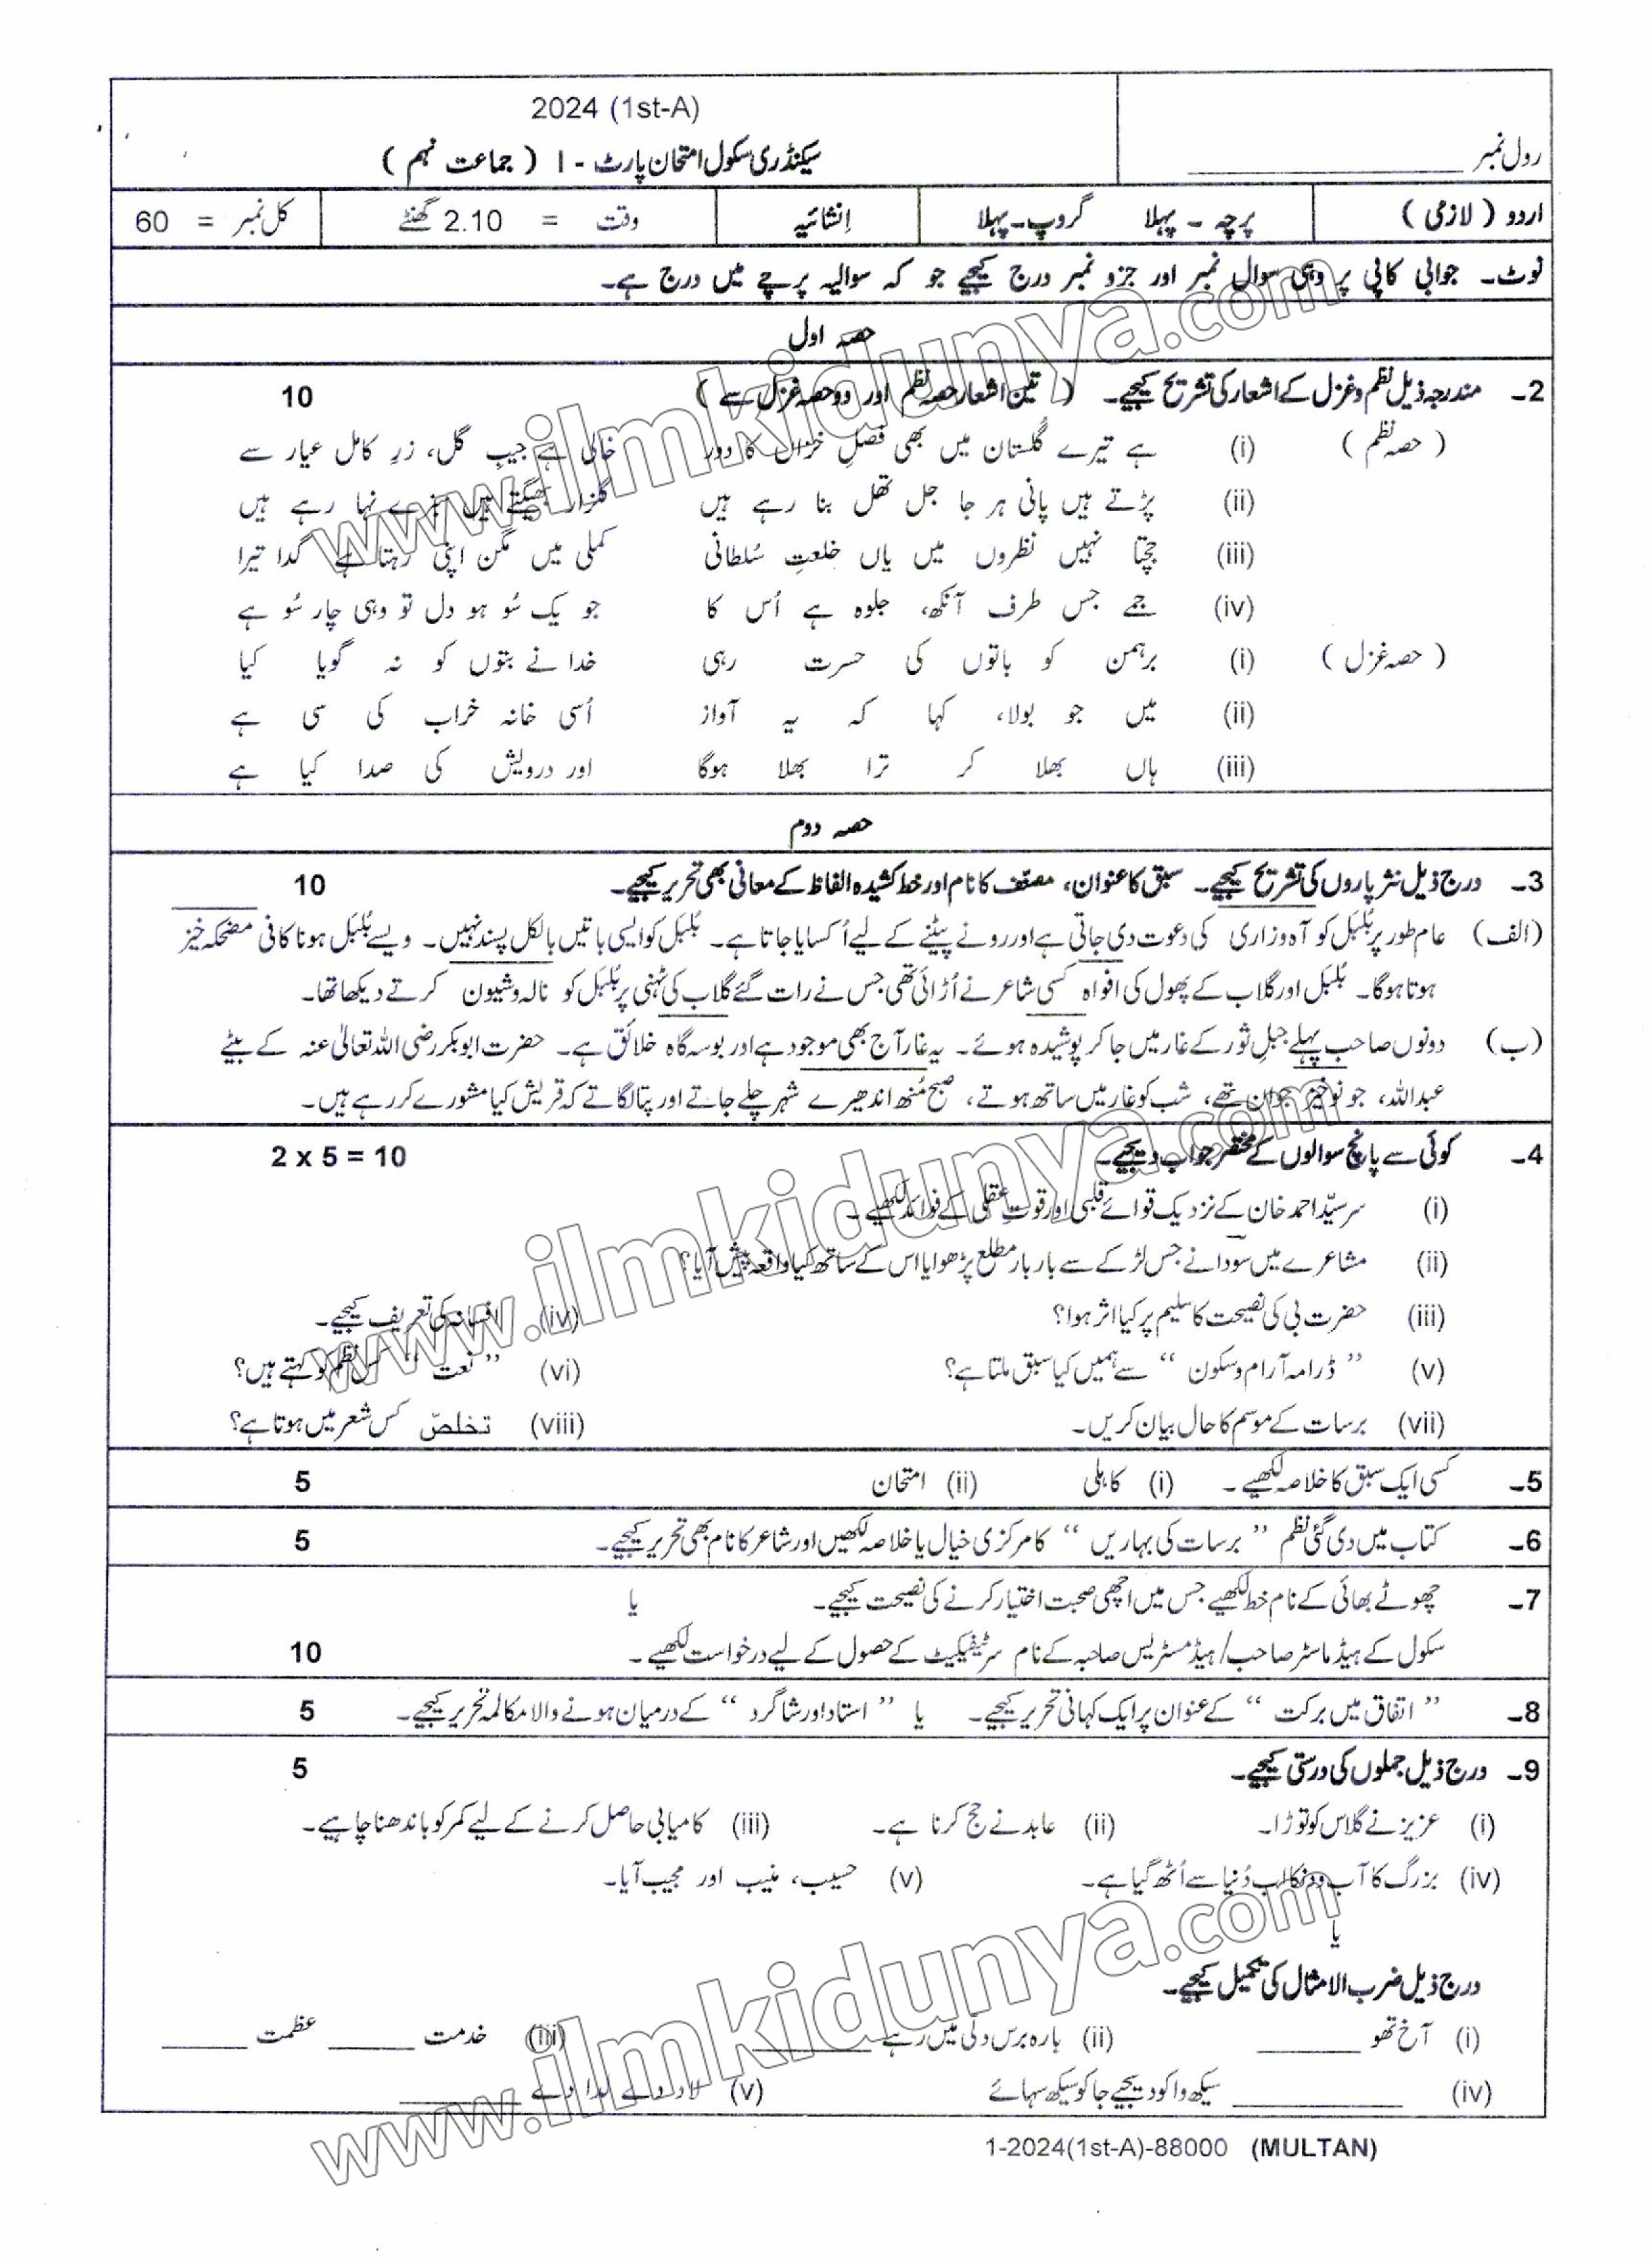 2024 (1st-A)
رول نمبر ____________
سیکنڈری سکول امتحان پارٹ - I ( جماعت نہم )
اردو ( لازمی ) پرچہ - پہلا گروپ۔پہلا اِنشائیہ وقت = 2.10 گھنٹے کل نمبر = 60
نوٹ۔ جوابی کاپی پر وہی سوال نمبر اور جزو نمبر درج کیجیے جو کہ سوالیہ پرچے میں درج ہے۔
حصہ اول
2۔ مندرجہ ذیل نظم و غزل کے اشعار کی تشریح کیجیے۔ ( تین اشعار حصہ نظم اور دو حصہ غزل سے ) 10
( حصہ نظم ) (i) ہے تیرے گُلستان میں بھی فصلِ خزاں کا دور خالی ہے جیبِ گل، زرِ کامل عیار سے
(ii) پڑتے ہیں پانی ہر جا جل تھل بنا رہے ہیں گلزار بھیگتے ہیں سبزے نہا رہے ہیں
(iii) جچتا نہیں نظروں میں یاں خلعتِ سُلطانی کملی میں مگن اپنی رہتا ہے گدا تیرا
(iv) جمے جس طرف آنکھ، جلوہ ہے اُس کا جو یک سُو ہو دل تو وہی چار سُو ہے
( حصہ غزل ) (i) برہمن کو باتوں کی حسرت رہی خدا نے بتوں کو نہ گویا کیا
(ii) میں جو بولا، کہا کہ یہ آواز اُسی خانہ خراب کی سی ہے
(iii) ہاں بھلا کر ترا بھلا ہوگا اور درویش کی صدا کیا ہے
حصہ دوم
3۔ درج ذیل نثر پاروں کی تشریح کیجیے۔ سبق کا عنوان، مصنّف کا نام اور خط کشیدہ الفاظ کے معانی بھی تحریر کیجیے۔ 10
(الف) عام طور پر بُلبل کو آہ وزاری کی دعوت دی جاتی ہے اور رونے پیٹنے کے لیے اُکسایا جاتا ہے۔ بُلبل کو ایسی باتیں بالکل پسند نہیں۔ ویسے بُلبل ہونا کافی مضحکہ خیز
ہوتا ہوگا۔ بُلبل اور گلاب کے پھول کی افواہ کسی شاعر نے اُڑائی تھی جس نے رات گئے گلاب کی ٹہنی پر بُلبل کو نالہ و شیون کرتے دیکھا تھا۔
(ب) دونوں صاحب پہلے جبلِ ثور کے غار میں جا کر پوشیدہ ہوئے۔ یہ غار آج بھی موجود ہے اور بوسہ گاہ خلائق ہے۔ حضرت ابوبکر رضی اللہ تعالیٰ عنہ کے بیٹے
عبداللہ، جو نوخیز جوان تھے، شب کو غار میں ساتھ ہوتے، صبح مُنھ اندھیرے شہر چلے جاتے اور پتا لگاتے کہ قریش کیا مشورے کر رہے ہیں۔
4۔ کوئی سے پانچ سوالوں کے مختصر جواب دیجیے۔ 2 x 5 = 10
(i) سرسیّد احمد خان کے نزدیک قوائے قلبی اور قوتِ عقلی کے فوائد لکھیے۔
(ii) مشاعرے میں سودا نے جس لڑکے سے بار بار مطلع پڑھوایا اس کے ساتھ کیا واقعہ پیش آیا؟
(iii) حضرت بی کی نصیحت کا سلیم پر کیا اثر ہوا؟ (iv) افسانہ کی تعریف کیجیے۔
(v) ” ڈرامہ آرام و سکون “ سے ہمیں کیا سبق ملتا ہے؟ (vi) ” نعت “ کس نظم کو کہتے ہیں؟
(vii) برسات کے موسم کا حال بیان کریں۔ (viii) تخلصّ کس شعر میں ہوتا ہے؟
5۔ کسی ایک سبق کا خلاصہ لکھیے۔ (i) کاہلی (ii) امتحان 5
6۔ کتاب میں دی گئی نظم ” برسات کی بہاریں “ کا مرکزی خیال یا خلاصہ لکھیں اور شاعر کا نام بھی تحریر کیجیے۔ 5
7۔ چھوٹے بھائی کے نام خط لکھیے جس میں اچھی صحبت اختیار کرنے کی نصیحت کیجیے۔ یا
سکول کے ہیڈ ماسٹر صاحب/ہیڈ مسٹریس صاحبہ کے نام سرٹیفکیٹ کے حصول کے لیے درخواست لکھیے۔ 10
8۔ ” اتفاق میں برکت “ کے عنوان پر ایک کہانی تحریر کیجیے۔ یا ” استاد اور شاگرد “ کے درمیان ہونے والا مکالمہ تحریر کیجیے۔ 5
9۔ درج ذیل جملوں کی درستی کیجیے۔ 5
(i) عزیز نے گلاس کو توڑا۔ (ii) عابد نے حج کرنا ہے۔ (iii) کامیابی حاصل کرنے کے لیے کمر کو باندھنا چاہیے۔
(iv) بزرگ کا آب و دنکا اب دُنیا سے اُٹھ گیا ہے۔ (v) حسیب، منیب اور مجیب آیا۔
یا
درج ذیل ضرب الامثال کی تکمیل کیجیے۔
(i) آخ تھو ______ (ii) بارہ برس دلّی میں رہے ______ (iii) خدمت ______ عظمت ______
(iv) سیکھ وا کو دیجیے جا کو سیکھ سہائے ______ (v) لاد دے لدا دے ______
1-2024(1st-A)-88000 (MULTAN)
www.ilmkidunya.com
www.ilmkidunya.com
www.ilmkidunya.com